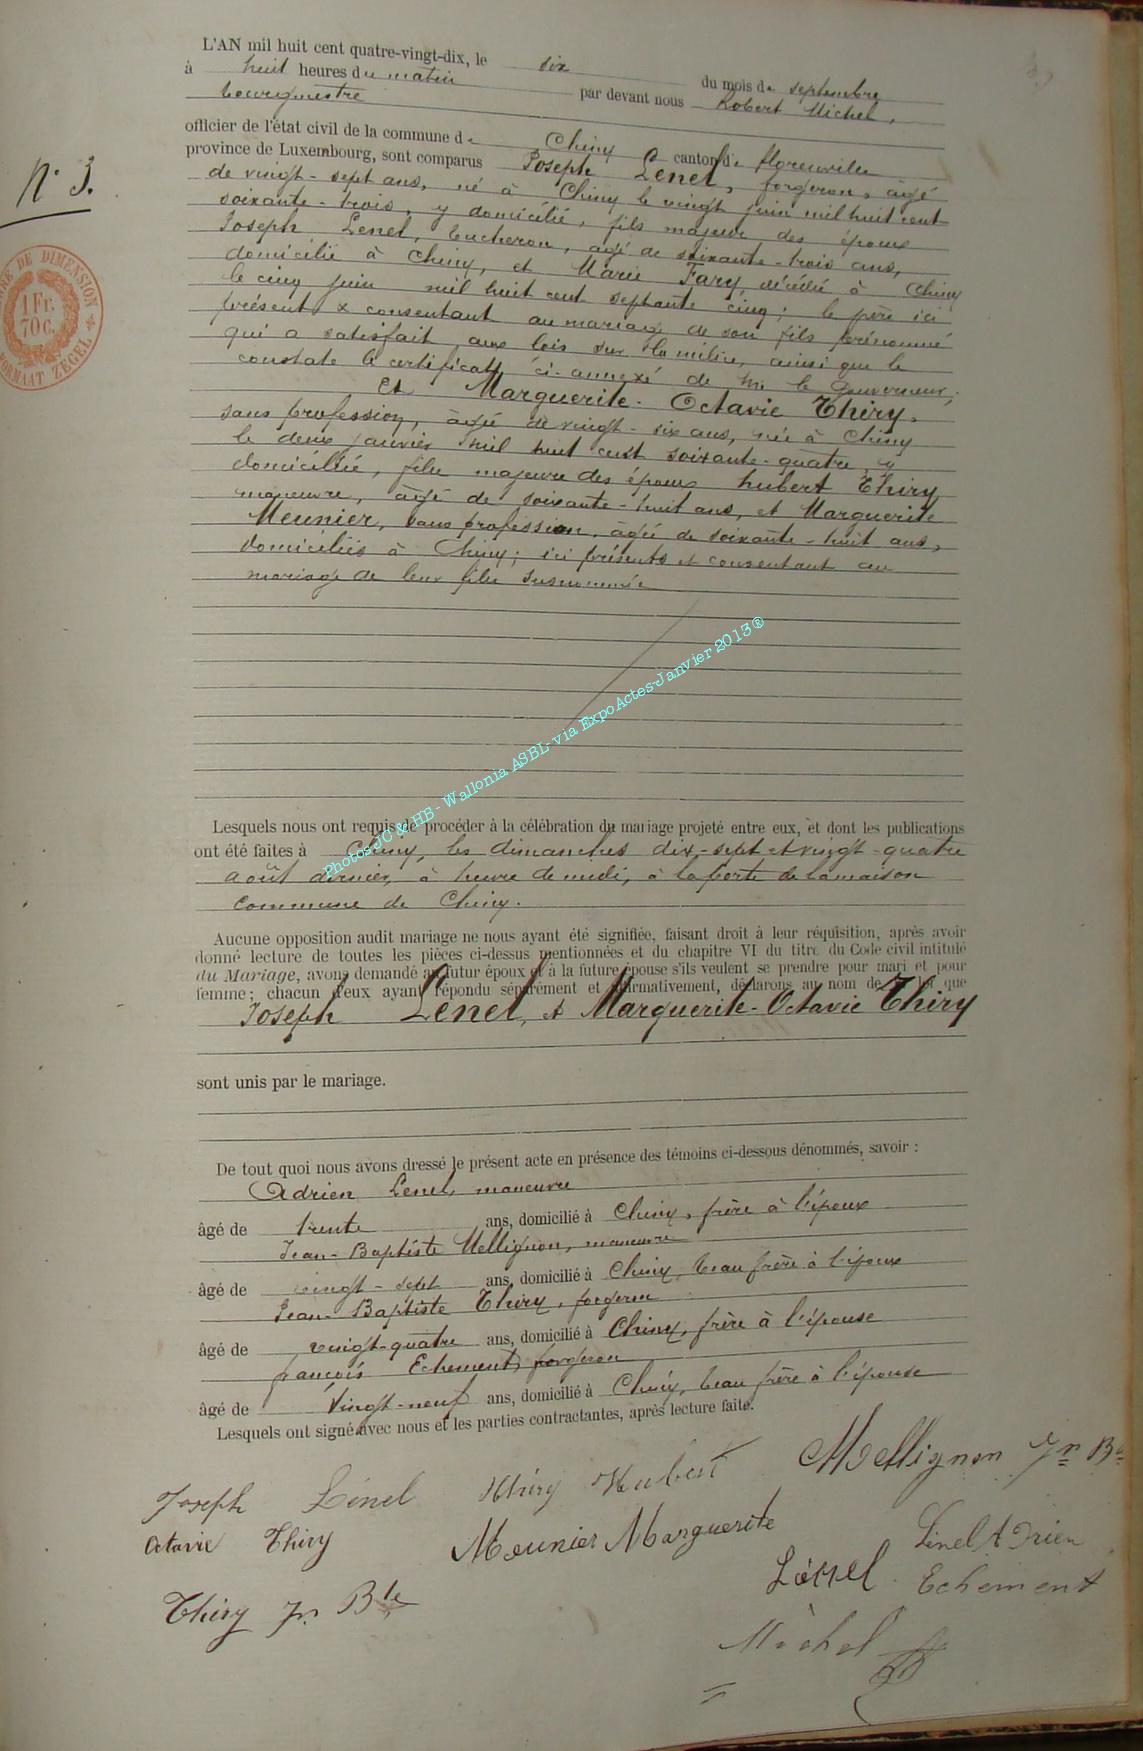 L'AN mil huit cent quatre-vingt-dix, le six du mois de septembre
à huit heures du matin par devant nous Robert Michel,
bourgmestre
officier de l'état civil de la commune de Chiny canton de florenville
province de Luxembourg, sont comparus Joseph Lenel, forgeron, âgé
de vingt-sept ans, né à Chiny le vingt juin mil huit cent
soixante-trois, y domicilié, fils majeur des époux
Joseph Lenel, bucheron, âgé de soixante-trois ans,
domicilié à Chiny, et Marie Fary, décédée à Chiny
le cinq juin mil huit cent septante cinq; le père ici
présent & consentant au mariage de son fils prénommé
qui a satisfait aux lois sur la milice, ainsi que le
constate le certificat ci-annexé de Mr le Gouverneur;
Et Marguerite-Octavie Thiry,
sans profession, âgée de vingt-six ans, née à Chiny
le deux janvier mil huit cent soixante-quatre, y
domiciliée, fille majeure des époux hubert Thiry,
manœuvre, âgé de soixante-huit ans, et Marguerite
Meunier, sans profession, âgée de soixante-huit ans,
domiciliés à Chiny; ici présents et consentant au
mariage de leur fille susnommée
N° 3.
1 Fr. 70 c.
Photos JC & HB - Wallonia ASBL via ExpoActes-Janvier 2013®
Lesquels nous ont requis de procéder à la célébration du mariage projeté entre eux, et dont les publications
ont été faites à Chiny, les dimanches dix-sept et vingt-quatre
août dernier, à heure de midi, à la porte de la maison
Commune de Chiny.
Aucune opposition audit mariage ne nous ayant été signifiée, faisant droit à leur réquisition, après avoir
donné lecture de toutes les pièces ci-dessus mentionnées et du chapitre VI du titre du Code civil intitulé
du Mariage, avons demandé au futur époux et à la future épouse s'ils veulent se prendre pour mari et pour
femme; chacun d'eux ayant répondu séparément et affirmativement, déclarons au nom de la loi que
Joseph Lenel, et Marguerite-Octavie Thiry
sont unis par le mariage.
De tout quoi nous avons dressé le présent acte en présence des témoins ci-dessous dénommés, savoir :
Adrien Lenel, manœuvre
âgé de trente ans, domicilié à Chiny, frère à l'époux
Jean-Baptiste Mellignon, manœuvre
âgé de vingt-sept ans, domicilié à Chiny, beau frère à l'époux
Jean-Baptiste Thiry, forgeron
âgé de vingt-quatre ans, domicilié à Chiny, frère à l'épouse
françois Echement, forgeron
âgé de Vingt-neuf ans, domicilié à Chiny, beau frère à l'épouse
Lesquels ont signé avec nous et les parties contractantes, après lecture faite.
Joseph Lénel Thiry Hubert Mellignon Jn Bte
Octavie Thiry Meunier Marguerite Linel Adrien
Thiry Jn Bte Lénel Echement
Michel